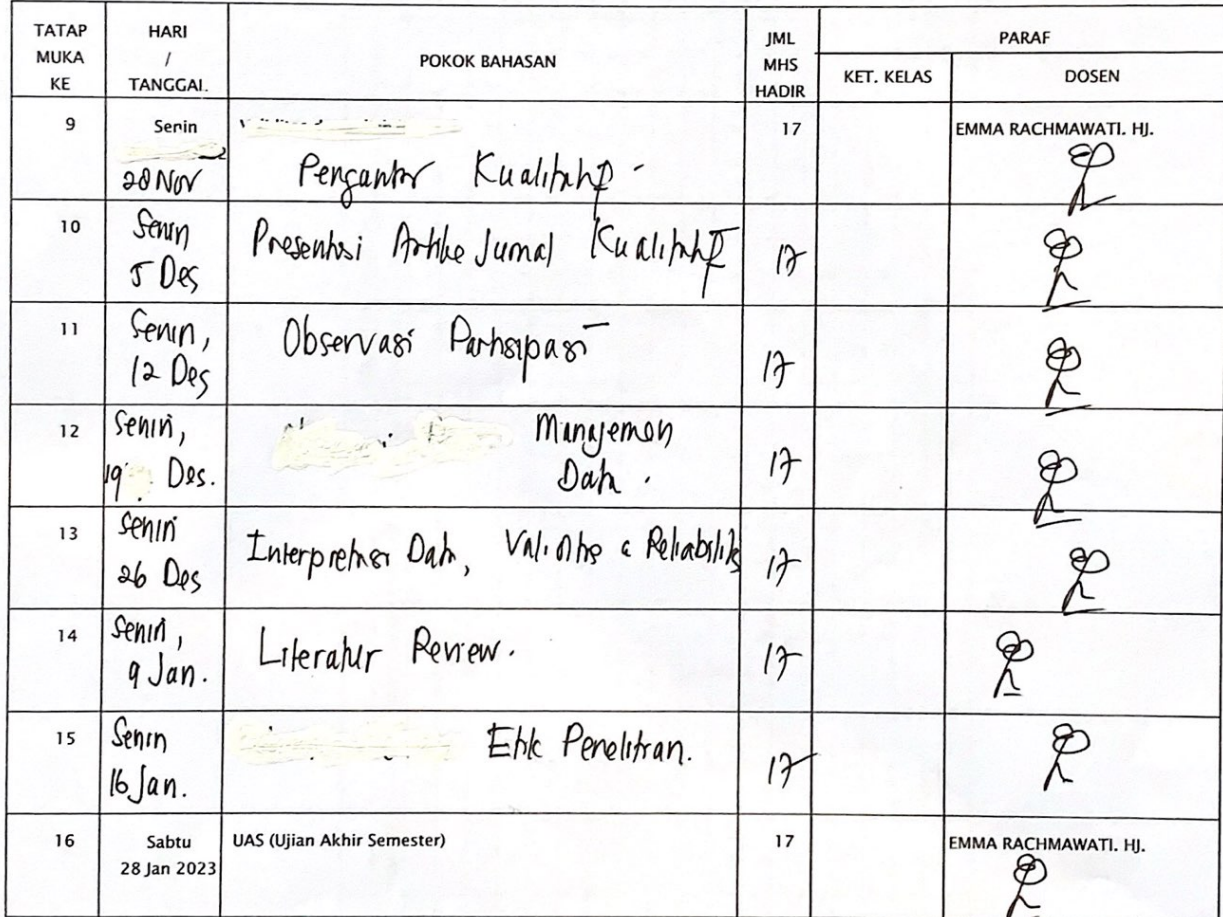 TATAP MUKA KE
HARI / TANGGAL
POKOK BAHASAN
JML MHS HADIR
PARAF
KET. KELAS
DOSEN
9 Senin 17 EMMA RACHMAWATI. HJ.
28 Nov Pengantar Kualitatif
10 Senin 5 Des Presentasi Artike Jurnal Kualitatif 17
11 Senin, 12 Des Observasi Partisipasi 17
12 Senin, 19 Des. Manajemen Data. 17
13 Senin 26 Des Interpretasi Data, Validitas & Reliabilitas 17
14 Senin, 9 Jan. Literatur Review. 17
15 Senin 16 Jan. Etik Penelitian. 17
16 Sabtu 28 Jan 2023 UAS (Ujian Akhir Semester) 17 EMMA RACHMAWATI. HJ.